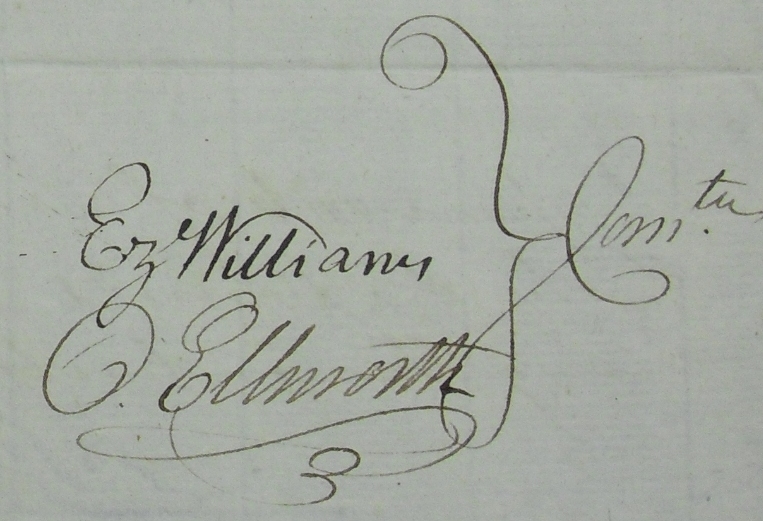 Ez Williams
O. Ellsworth
Com.tee